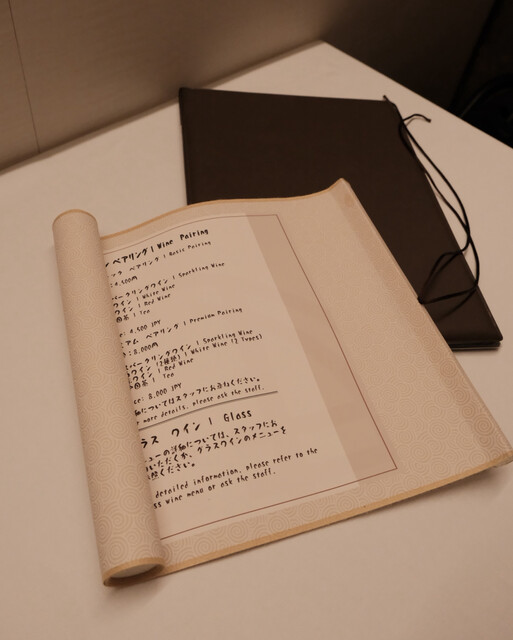 ペアリング | Wine Pairing
ペアリング | Basic Pairing
4,500円
スパークリングワイン | Sparkling Wine
ワイン | White Wine
ワイン | Red Wine
茶 | Tea
4,500 JPY
アム ペアリング | Premium Pairing
8,000円
パークリングワイン | Sparkling Wine
ワイン (2種類) | White Wine (2 Types)
ワイン | Red Wine
茶 | Tea
8,000 JPY
についてはスタッフにお尋ねください。
more details, please ask the staff.
ラス ワイン | Glass
ューの詳細については、スタッフにお
いただくか、グラスワインのメニューを
ください。
detailed information, please refer to the
wine menu or ask the staff.